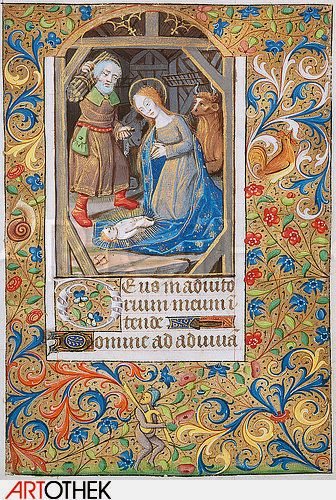 Eus in adiuto
rium meum i
tende
Domine ad adiuua
ARTOTHEK